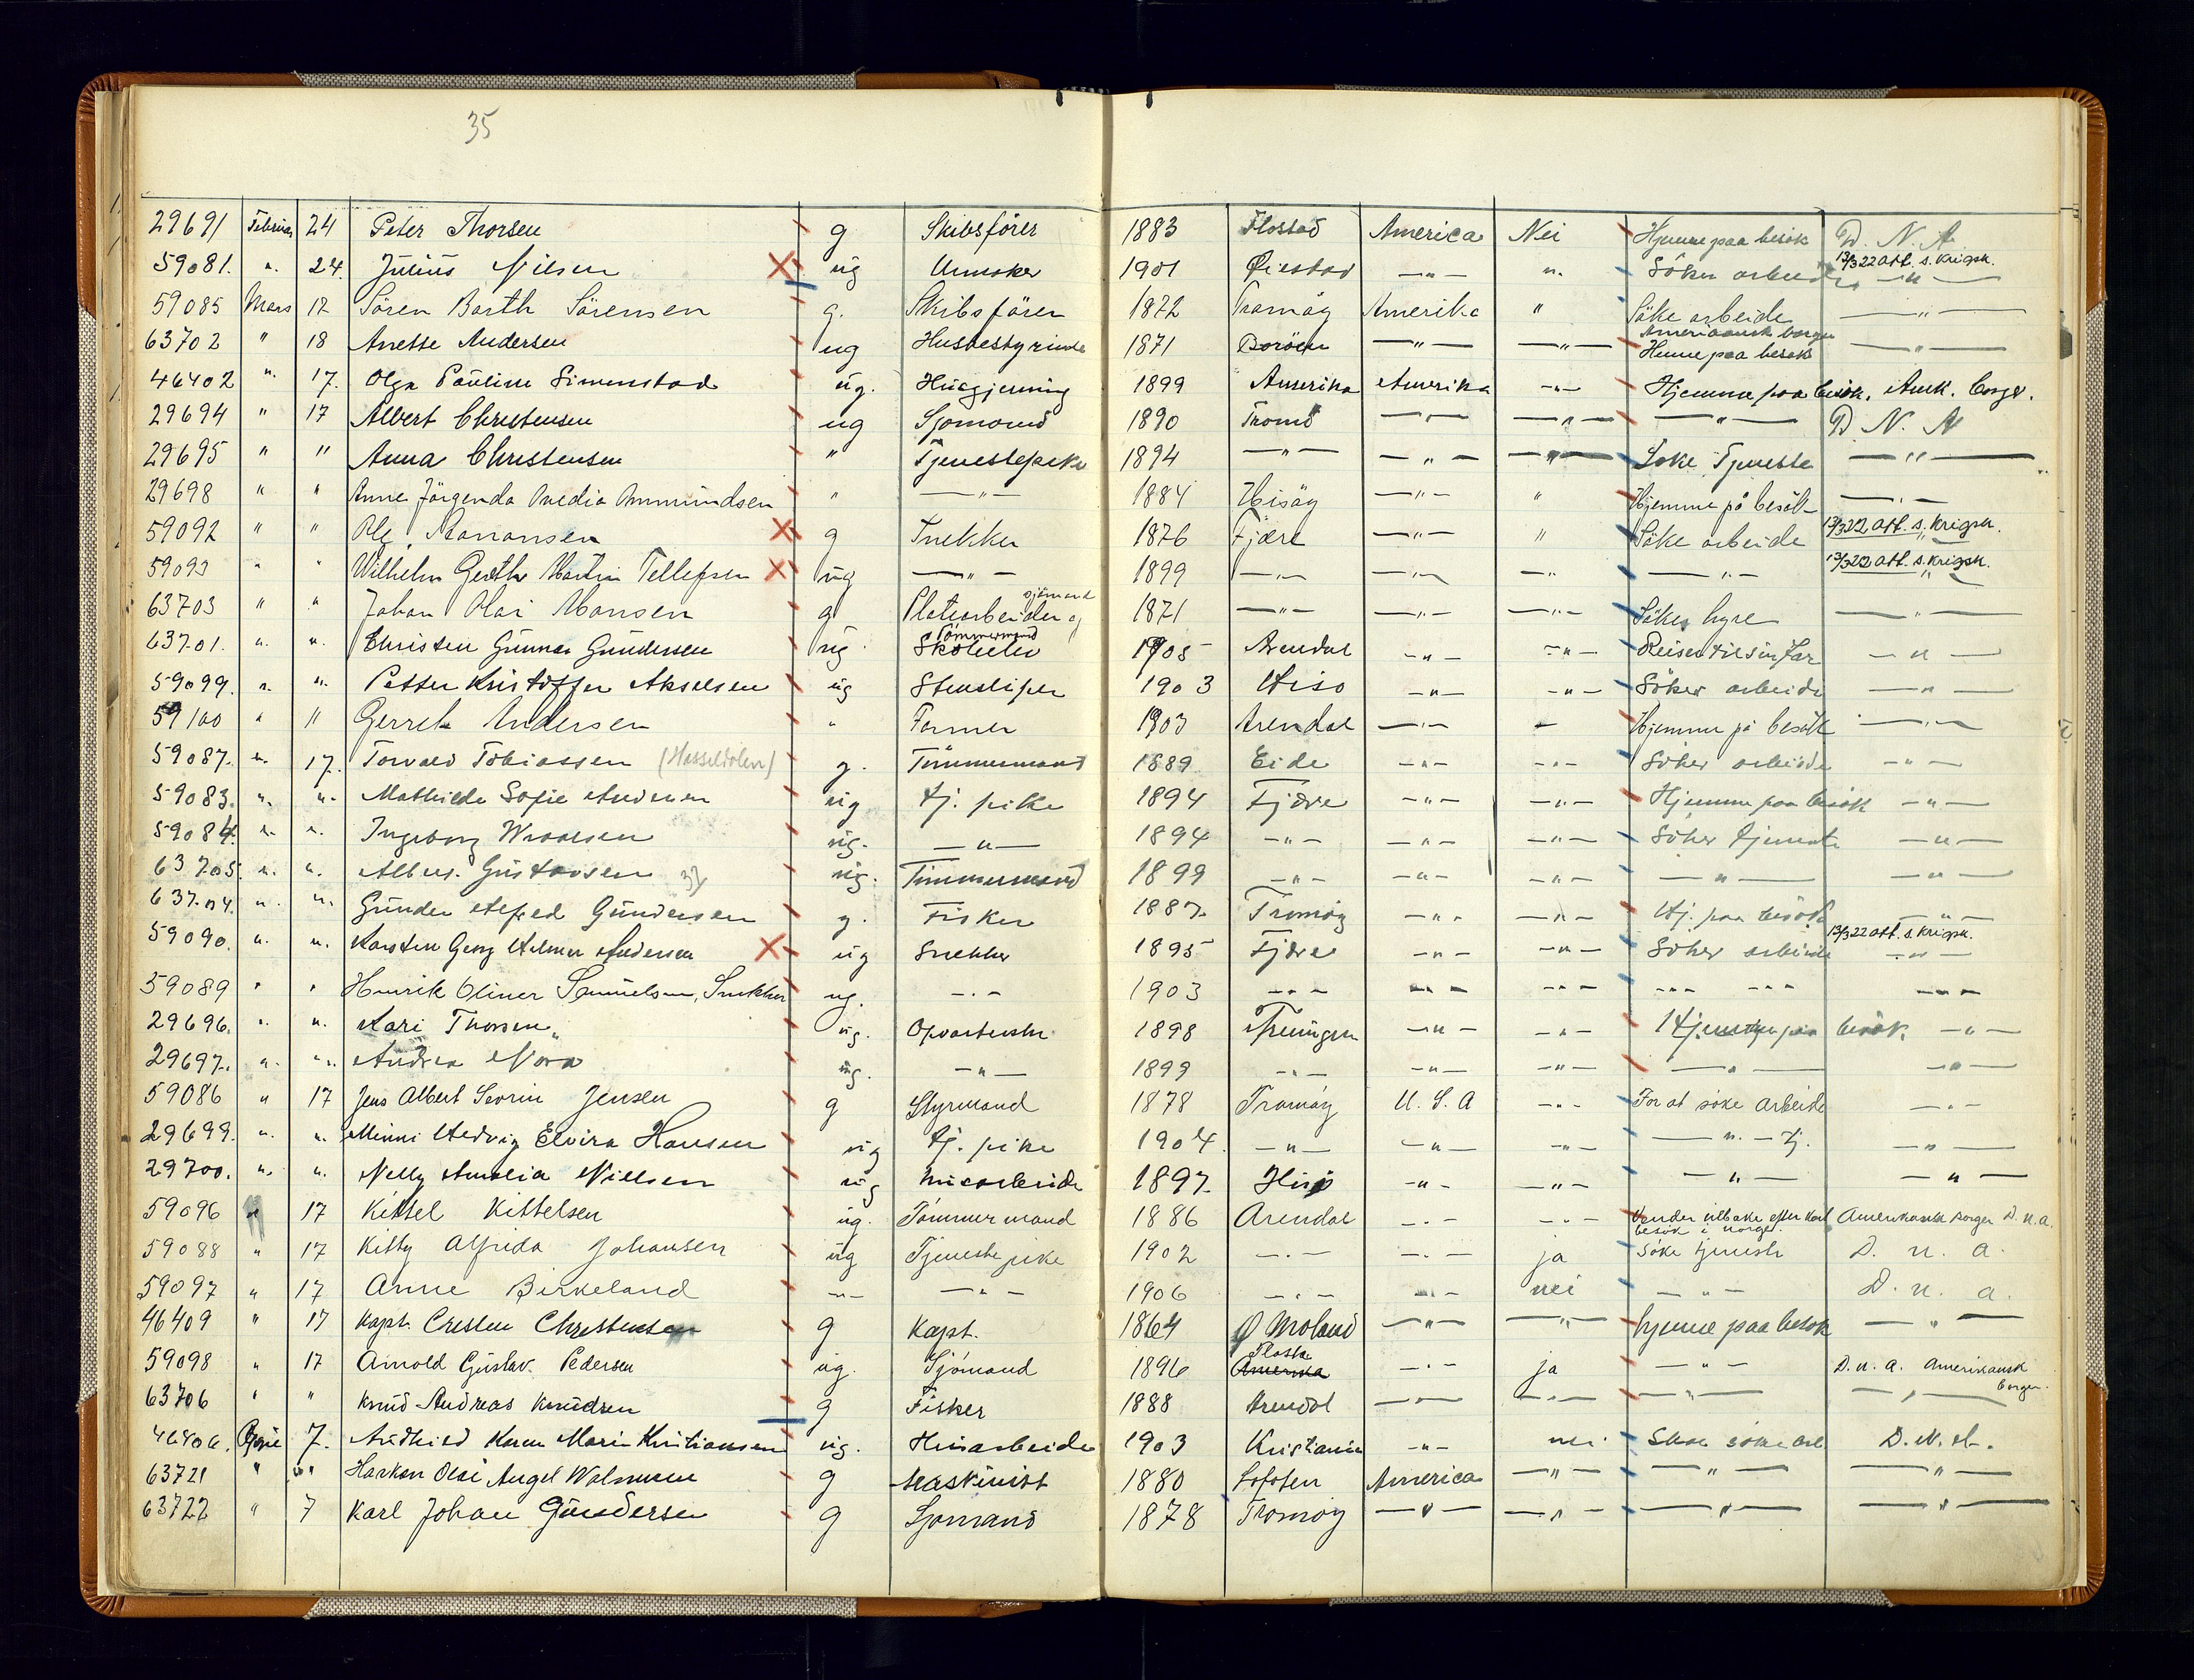 35
29691 Februar 24 Peter Thorsen g Skibsförer 1883 Flostad America Nei Hjemme paa besök D. N. A.
59081. " 24. Julius Nilsen ug 1901 Øiestad —"— ". Söker arbeide 13/3 22 att. s. krigsk. —"—
59085 Mars 17 Sören Barth Sörensen g. Skibsförer 1872 Tromöy Amerika " Söke arbeide —"—
63702 " 18 Anette Andersen ug Husbestyrinde 1871 Boröen —"— —"— Amerikansk borger Hjemme paa besök —"—
46402 ". 17. Olga Pauline Simenstad ug. Husgjerning 1899 Amerika Amerika —"— Hjemme paa besök. Amk. borger.
29694 " 17 Albert Christensen ug Sjömand 1890 Tromö —"— —"— —"— D N. A
29695 " " Anna Christensen " Tjenestepike 1894 —"— —"— —"— Söke Tjeneste —"—
29698 " " Anne Jörgenda Ovedia Ammundsen " —"— 1884 Hisöy —"— " Hjemme på besök —"—
59092 " " Ole Aanonsen g Snekker 1876 Fjære —"— " Söke arbeide 13/3 22 att. s. krigsk.
59093 " " Wilhelm Gerth Martin Tellefsen ug —"— 1899 —"— —"— —"— —"— 13/3 22 att. s. krigsk.
63703 " " Johan Olai Monsen g Platearbeider og sjömand 1871 —"— —"— —"— Söke hyre —"—
63701. ". ". Christen Gunnar Gundersen ug Tömmermand Skoleelev 1905 Arendal —"— —"— Reiser til sin far —"—
59099. ". ". Petter Kristoffer Akselsen ug Stensliper 1903 Hisö —"— —"— Söker arbeide —"—
59100 " " Gerrek Andersen " Farmer 1903 Arendal —"— — Hjemme på besök —"—
59087. ". 17. Torvald Tobiassen (Hasseldalen) g. Tömmermand 1889 Eide —"— —"— Söker arbeide —"—
59083. ". ". Mathilde Sofie Andersen ug tj. pike 1894 Fjære —"— —"— Hjemme paa besök —"—
59084. ". ". Ingeborg Wroalsen ug. —"— 1894 —"— —"— —"— Söker tjeneste —"—
63705. ". ". Albert Gustavsen ug. Tömmermand 1899 —"— —"— —"— —"— —"—
63704. ". ". Gunder Alfred Gundersen g. Fisker 1887 Tromöy —"— —"— Hj. paa besök —"—
59090. ". ". Karsten Georg Hilmer Andersen ug Snekker 1895 Fjære —"— —"— Söker arbeide 13/3 22 att. s. krigsk. —"—
59089 " " Henrik Oliver Samuelsen, Snekker ug. —"— 1903 —"— —"— —"— —"— —"— —"—
29696. ". ". Kari Thorsen ug. Opvarterske 1898 —"— —"— Hjemme paa besök —"—
29697. ". ". Andrea Nora ug. —"— 1899 —"— —"— —"— —"— —"—
59086 " 17 Jens Albert Severin Jensen g Styrmand 1878 Tromöy U. S. A —"— For at söke arbeide —"—
29699. ". ". Minni Hedvig Elvira Hansen ug tj. pike 1904 —"— —"— —"— —"— tj. —"—
29700. ". ". Nelly Amalia Nielsen ug Husarbeide 1897 Hisö —"— —"— —"— —"—
59096 " 17 Kittel Kittelsen ug. Tömmermand 1886 Arendal —"— —"— Vender tilbake efter kort besök i norge. Amerikansk borger D.n.a.
59088 " 17 Kitty Alfrida Johansen ug Tjenestepike 1902 —"— —"— ja söke tjeneste D. n. a.
59097 " 17 Anne Birkeland —"— —"— 1906 —"— —"— nei —"— D. n. a.
46409 " 17 Kapt. Cresten Christensen g Kapt. 1864 Ø Moland —"— —"— hjemme paa besök —"—
59098 " 17 Arnold Gustav Pedersen ug. Sjömand 1896 Flosta Amerika —"— ja —"— D. n. a. Amerikansk borger.
63706 " " Knud Andreas Knudsen g Fisker 1888 Arendal —"— —"— —"— —"—
46406. 7. Andhild Karen Marie Kristiansen ug. Husarbeide 1903 Kristiania —"— nei Skal söke arb D. N. A.
63721 " " Haakon Olai Angel g Maskinist 1880 Lofoten America —"— —"— —"—
63722 " 7 Karl Johan Gundersen g Sjomand 1878 Tromöy —"— —"— —"— —"—